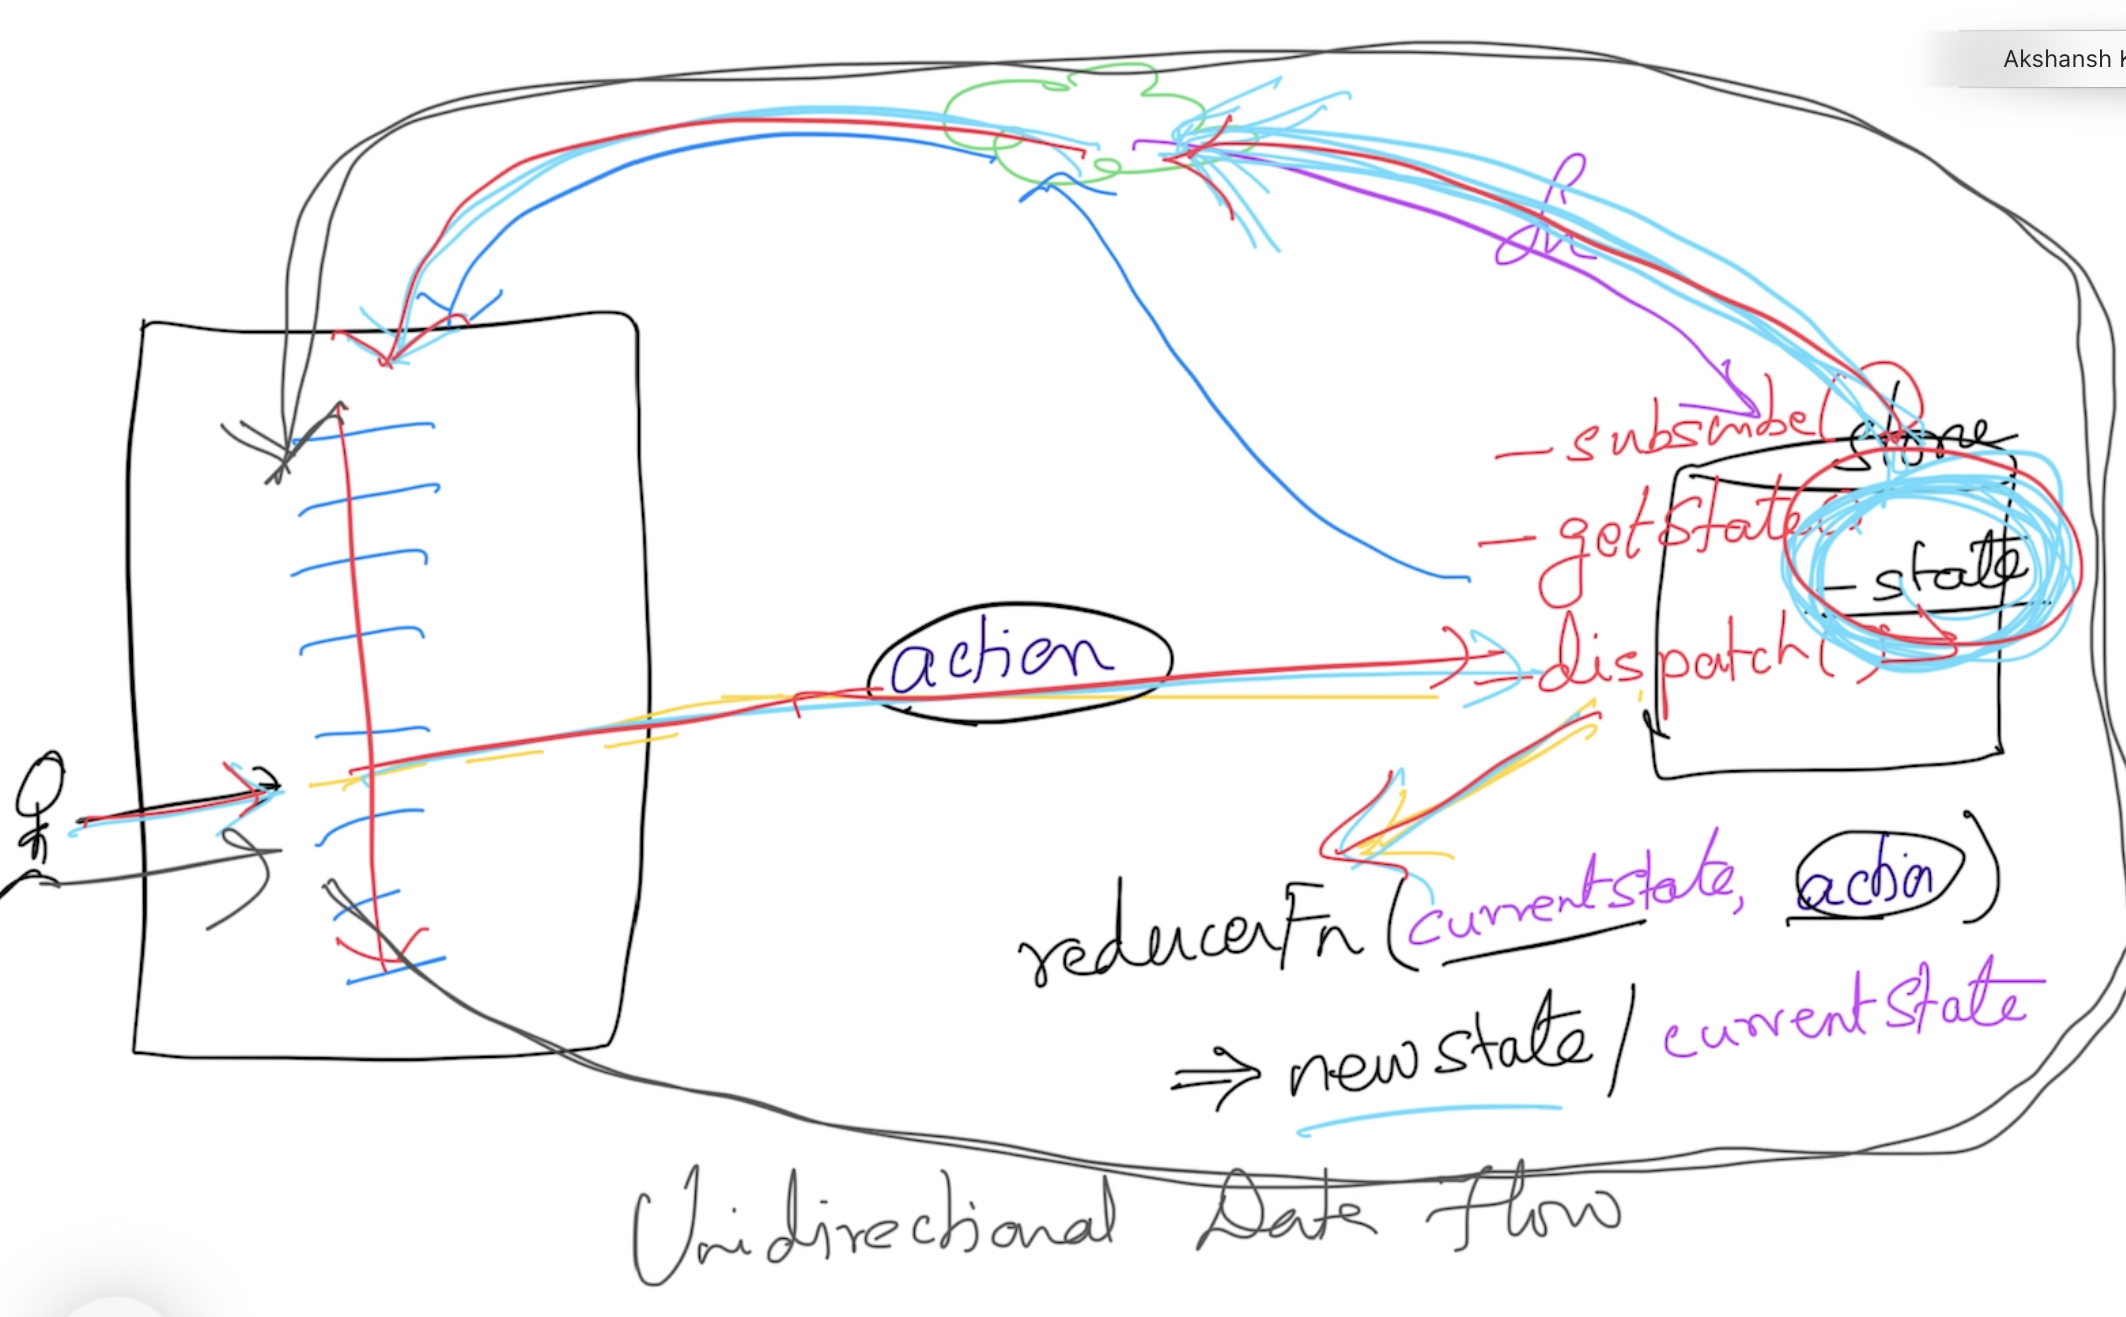 Akshansh K
fn
- subscribe(
store
- getState()
- state
action
- dispatch( )
reducerFn (currentstate, action)
⇒ newstate / currentState
Unidirectional Data flow